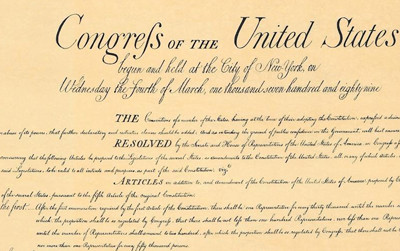 Congreſs OF THE United States
begun and held at the City of New-York, on
Wednesday the Fourth of March, one thousand seven hundred and eighty nine
THE Conventions of a number of the States, having at the time of their adopting the Constitution, expressed a desire
abuse of its powers, that further declaratory and restrictive clauses should be added: And as extending the ground of public confidence in the Government, will best ensure
RESOLVED by the Senate and House of Representatives of the United States of America, in Congress
concurring, that the following Articles be proposed to the Legislatures of the several States, as amendments to the Constitution of the United States, all or any of which Articles
said Legislatures, to be valid to all intents and purposes, as part of the said Constitution; viz.
ARTICLES in addition to, and Amendment of the Constitution of the United States of America, proposed by
of the several States, pursuant to the fifth Article of the original Constitution.
the first... After the first enumeration required by the first Article of the Constitution, there shall be one Representative for every thirty thousand, until the number
which the proportion shall be so regulated by Congress, that there shall be not less than one hundred Representatives, nor less than one Representative
until the number of Representatives shall amount to two hundred, after which the proportion shall be so regulated by Congress, that there shall not be
nor more than one Representative for every fifty thousand persons.